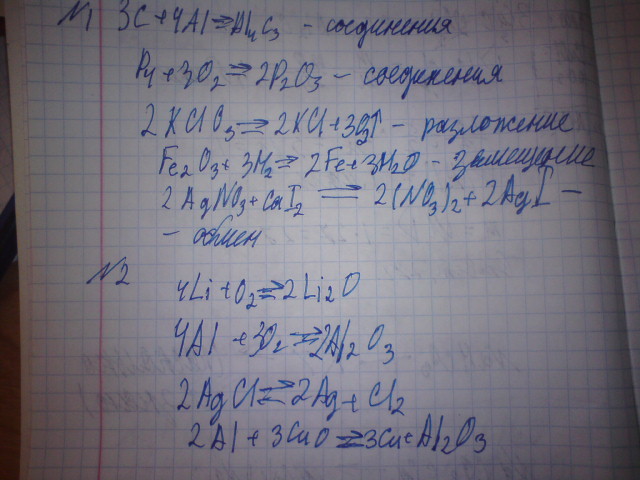 №1 3C + 4Al ⇉ Al4C3 - соединения
P4 + 3O2 ⇉ 2P2O3 - соединения
2KClO3 ⇉ 2KCl + 3O2↑ - разложение
Fe2O3 + 3H2 ⇉ 2Fe + 3H2O - замещение
2AgNO3 + CaI2 ⇉ 2(NO3)2 + 2AgI -
- обмен
№2
4Li + O2 ⇉ 2Li2O
4Al + 3O2 ⇉ 2Al2O3
2AgCl ⇉ 2Ag + Cl2
2Al + 3CuO ⇉ 3Cu + Al2O3